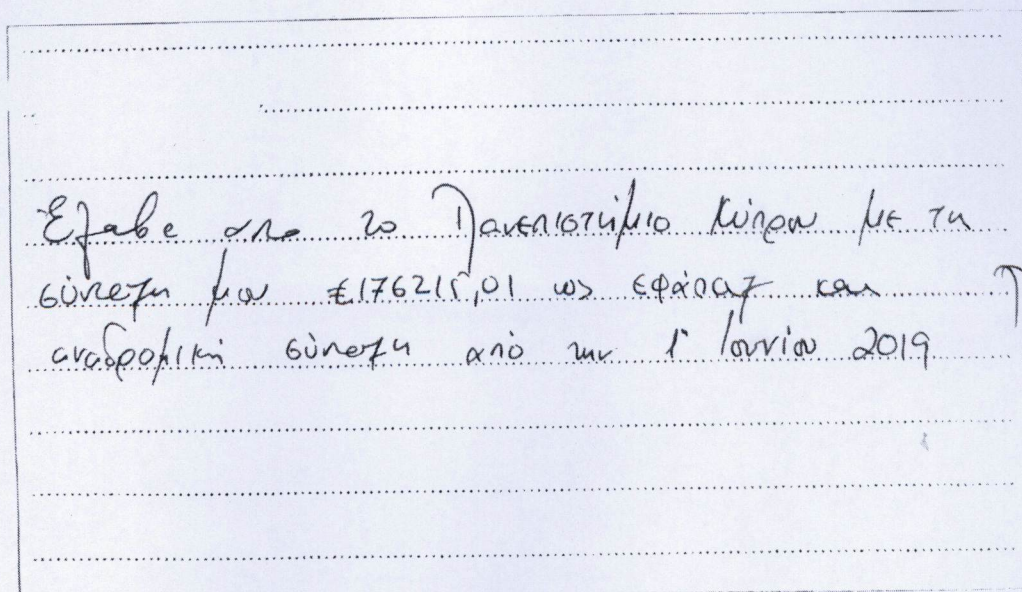 Έλαβα από το Πανεπιστήμιο Κύπρου με τη
σύνταξη μου €176215,01 ως εφάπαξ και
αναδρομική σύνταξη από την 1η Ιουνίου 2019